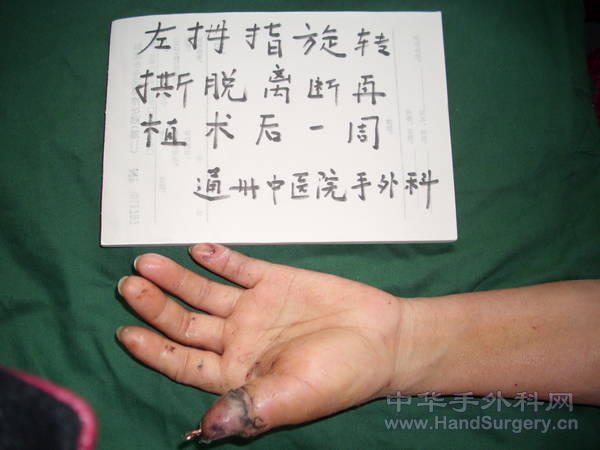 左拇指旋转
撕脱离断再
植术后一周
通州中医院手外科
中华手外科网
www.HandSurgery.cn